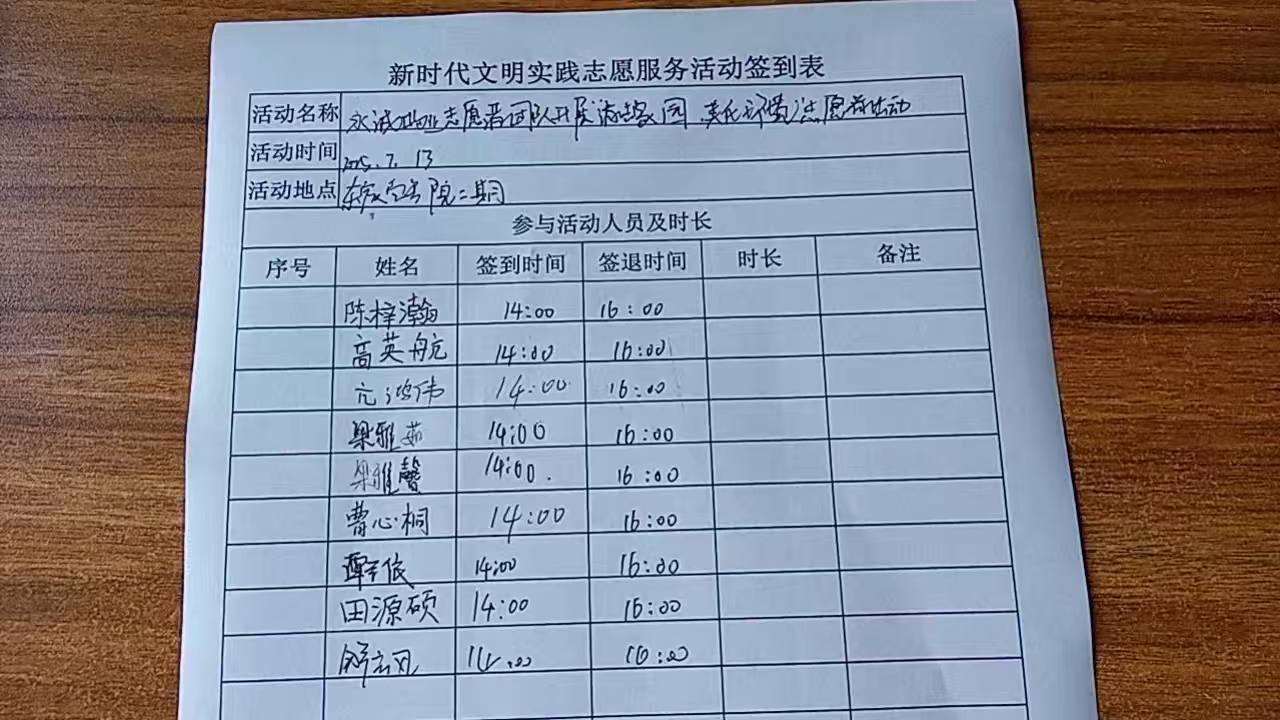 新时代文明实践志愿服务活动签到表
活动名称 永诚物业志愿者团队开展清洁家园 美化环境志愿者活动
活动时间 2025.7.13
活动地点 院二期
参与活动人员及时长
序号 姓名 签到时间 签退时间 时长 备注
陈梓瀚 14:00 16:00
高英航 14:00 16:00
亢鸿伟 14:00 16:00
梁雅茹 14:00 16:00
梁雅馨 14:00. 16:00
曹心桐 14:00 16:00
14:00 16:00
田源硕 14:00 16:00
14:00 16:00